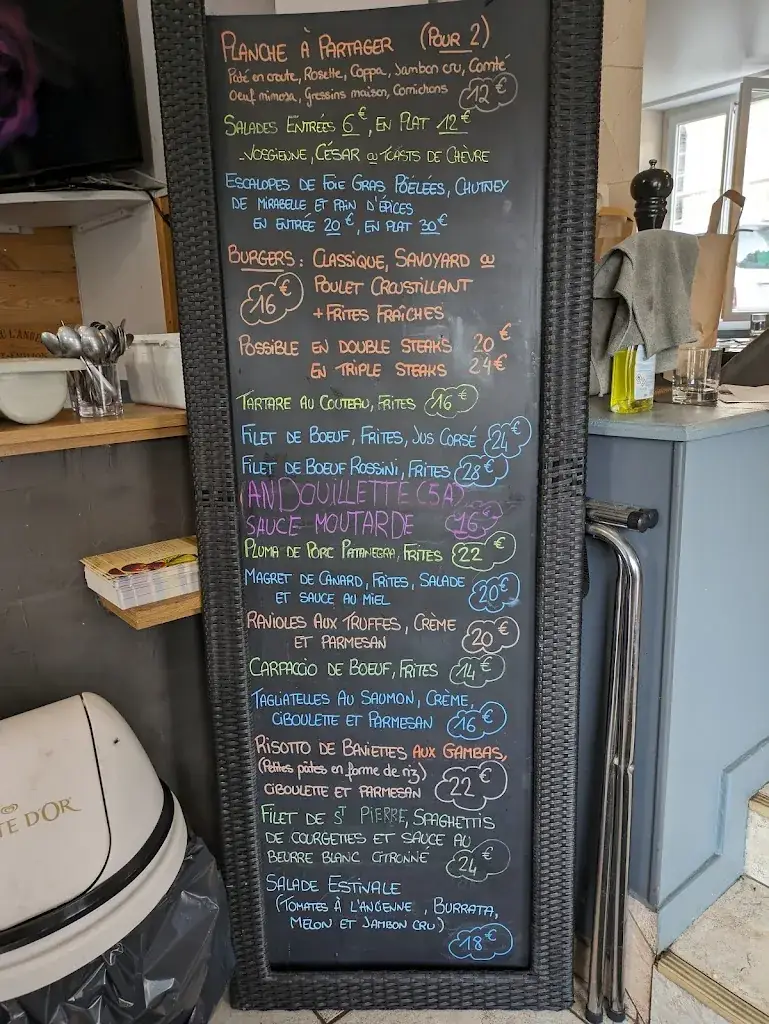 PLANCHE À PARTAGER (POUR 2)
Pâté en croute, Rosette, Coppa, Jambon cru, Comté
Oeuf mimosa, Gressins maison, Cornichons 12€
SALADES ENTRÉES 6€, EN PLAT 12€
VOSGIENNE, CÉSAR OU TOASTS DE CHÈVRE
ESCALOPES DE FOIE GRAS POÊLÉES, CHUTNEY
DE MIRABELLE ET PAIN D'ÉPICES
EN ENTRÉE 20€, EN PLAT 30€
BURGERS: CLASSIQUE, SAVOYARD OU
16€ POULET CROUSTILLANT
+ FRITES FRAÎCHES
POSSIBLE EN DOUBLE STEAKS 20€
EN TRIPLE STEAKS 24€
TARTARE AU COUTEAU, FRITES 16€
FILET DE BOEUF, FRITES, JUS CORSÉ 24€
FILET DE BOEUF ROSSINI, FRITES 28€
ANDOUILLETTE (5A)
SAUCE MOUTARDE 16€
PLUMA DE PORC PATANEGRA, FRITES 22€
MAGRET DE CANARD, FRITES, SALADE
ET SAUCE AU MIEL 20€
RAVIOLES AUX TRUFFES, CRÈME
ET PARMESAN 20€
CARPACCIO DE BOEUF, FRITES 14€
TAGLIATELLES AU SAUMON, CRÈME,
CIBOULETTE ET PARMESAN 16€
RISOTTO DE BAVETTES AUX GAMBAS,
(Petites pâtes en forme de riz)
CIBOULETTE ET PARMESAN 22€
FILET DE ST PIERRE, SPAGHETTIS
DE COURGETTES ET SAUCE AU
BEURRE BLANC CITRONNÉ 24€
SALADE ESTIVALE
(TOMATES À L'ANCIENNE, BURRATA,
MELON ET JAMBON CRU) 18€
TE D'OR